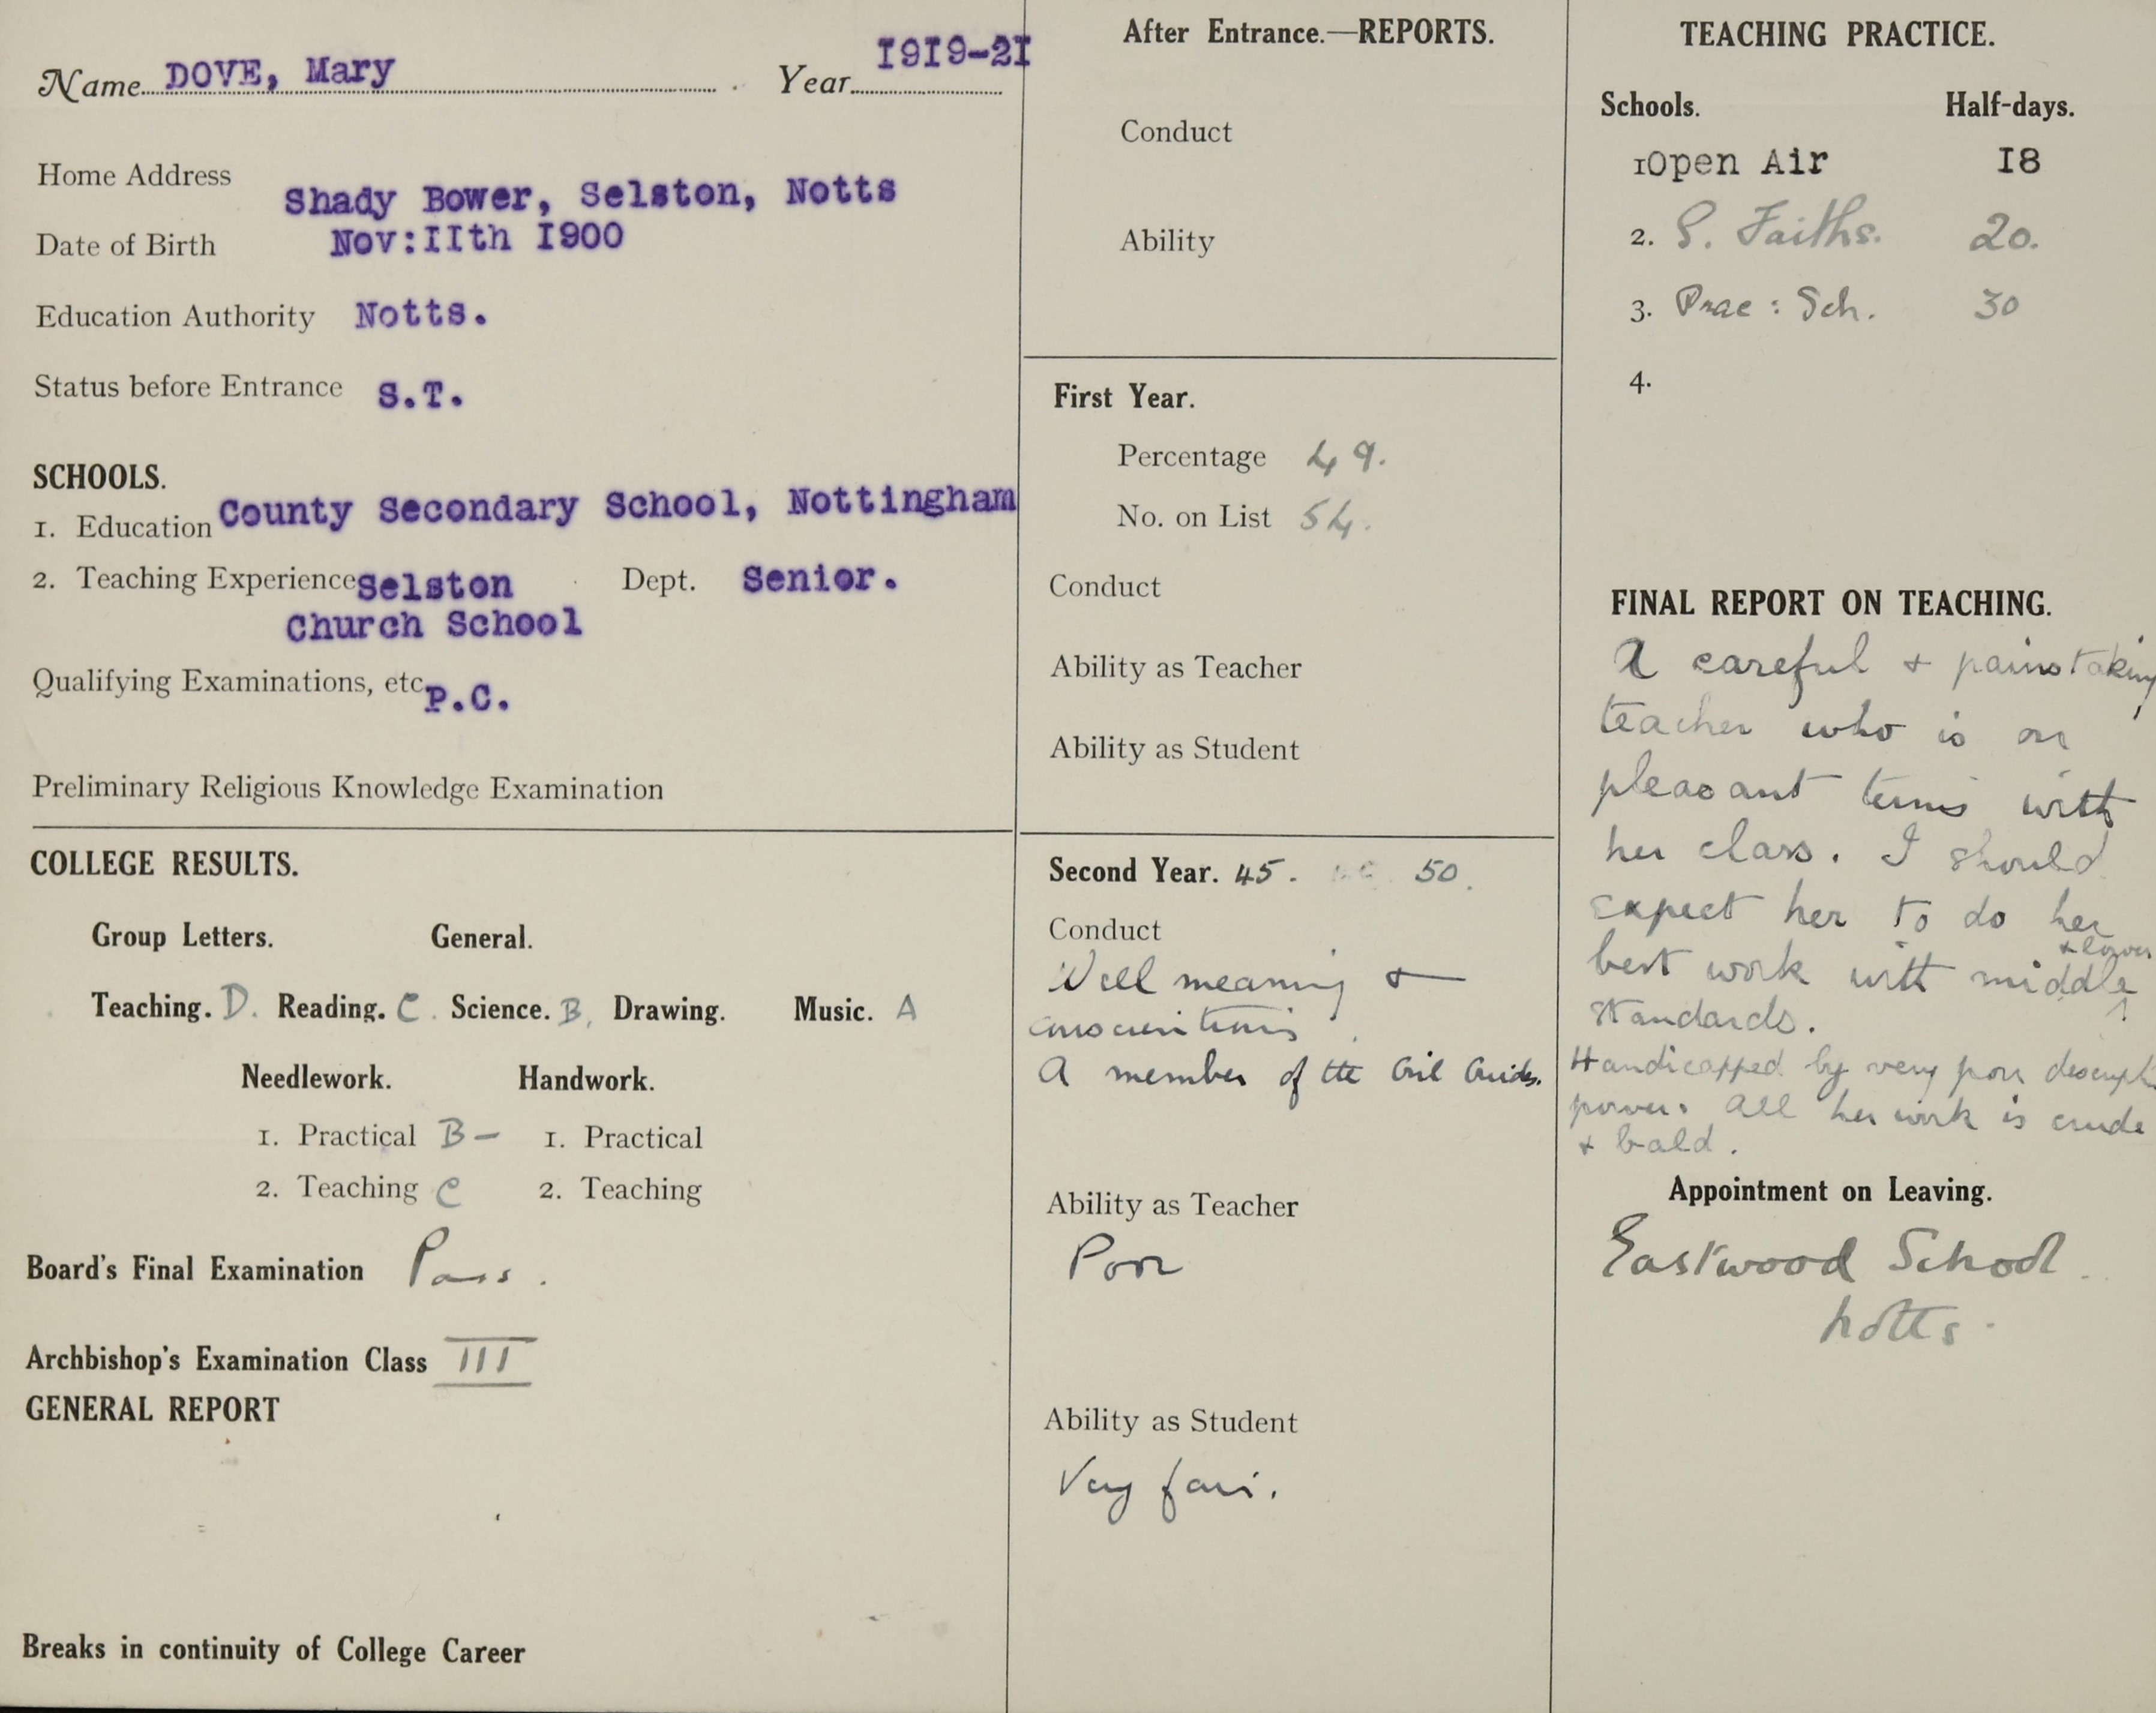 Name DOVE, Mary Year 1919-21
Home Address
Shady Bower, Selston, Notts
Date of Birth Nov:IIth I900
Education Authority Notts.
Status before Entrance S.T.
SCHOOLS.
1. Education County Secondary School, Nottingham
2. Teaching Experience Selston Dept. Senior.
Church School
Qualifying Examinations, etc. P.C.
Preliminary Religious Knowledge Examination
COLLEGE RESULTS.
Group Letters. General.
Teaching. D. Reading. C. Science. B, Drawing. Music. A
Needlework. Handwork.
1. Practical B- 1. Practical
2. Teaching C 2. Teaching
Board's Final Examination Pass.
Archbishop's Examination Class III
GENERAL REPORT
Breaks in continuity of College Career
After Entrance.—REPORTS.
Conduct
Ability
First Year.
Percentage 49.
No. on List 54.
Conduct
Ability as Teacher
Ability as Student
Second Year. 45. 50.
Conduct
Well meaning &
conscientious
A member of the Girl Guides.
Ability as Teacher
Poor
Ability as Student
Very fair.
TEACHING PRACTICE.
Schools. Half-days.
1 Open Air I8
2. S. Faiths. 20.
3. Prac: Sch. 30
4.
FINAL REPORT ON TEACHING.
A careful & painstaking
teacher who is on
pleasant terms with
her class. I should
expect her to do her
& lower
best work with middle
standards.
Handicapped by very poor
power. All her work is crude
& bald.
Appointment on Leaving.
Eastwood School.
Notts.